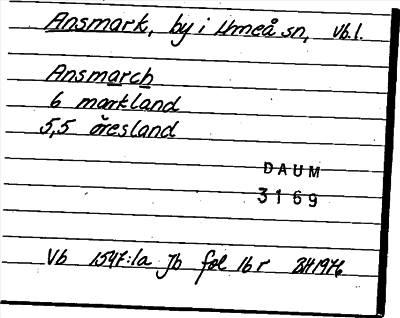 Ansmark, by i Umeå sn, Vb.l.
Ansmarch
6 markland
5,5 öresland
DAUM
3169
Vb 1547:1a Jb fol 16 r BH 1976